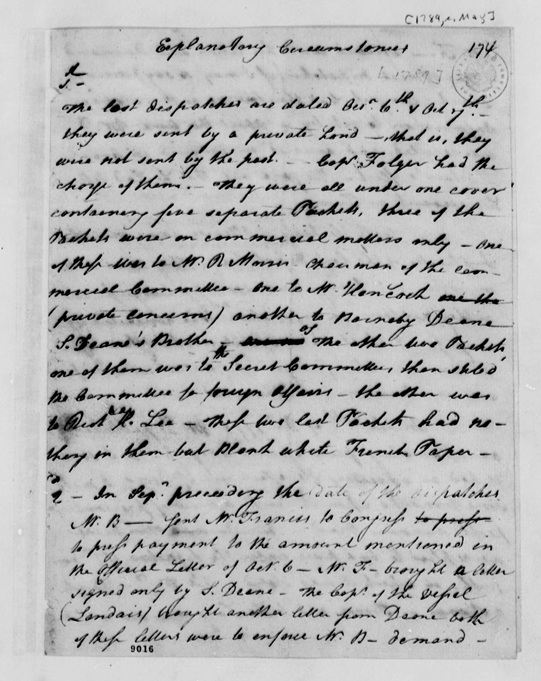 [1789, May]
Explanatory Circumstances 174
[1789]
1st
The last dispatches are dated Octr 6th & Oct 7th –
they were sent by a private hand – that is, they
were not sent by the post – Capt Folger had the
charge of them. – They were all under one cover
containing five separate Packets, three of the
Packets were on commercial matters only – one
of these was to Mr R Morris chairman of the com-
mercial Committee – one to Mr Hancock one the
(private concerns) another to Barnaby Deane
S. Deane's Brother – The other two Packets
one of them was to the Secret Committee, then stiled
the Committee for foreign affairs – the other was
to Richd H. Lee – these two last Packets had no-
thing in them but Blank white French Paper –
2d – In Sepr preceeding the date of the dispatches
Mr B— sent Mr Francis to Congress to press
to press payment to the amount mentioned in
the Official Letter of Oct 6 – Mr F— brought a letter
signed only by S. Deane – the Capt of the vessel
(Landais) brought another letter from Deane both
of these letters were to enforce Mr B— demand –
9016